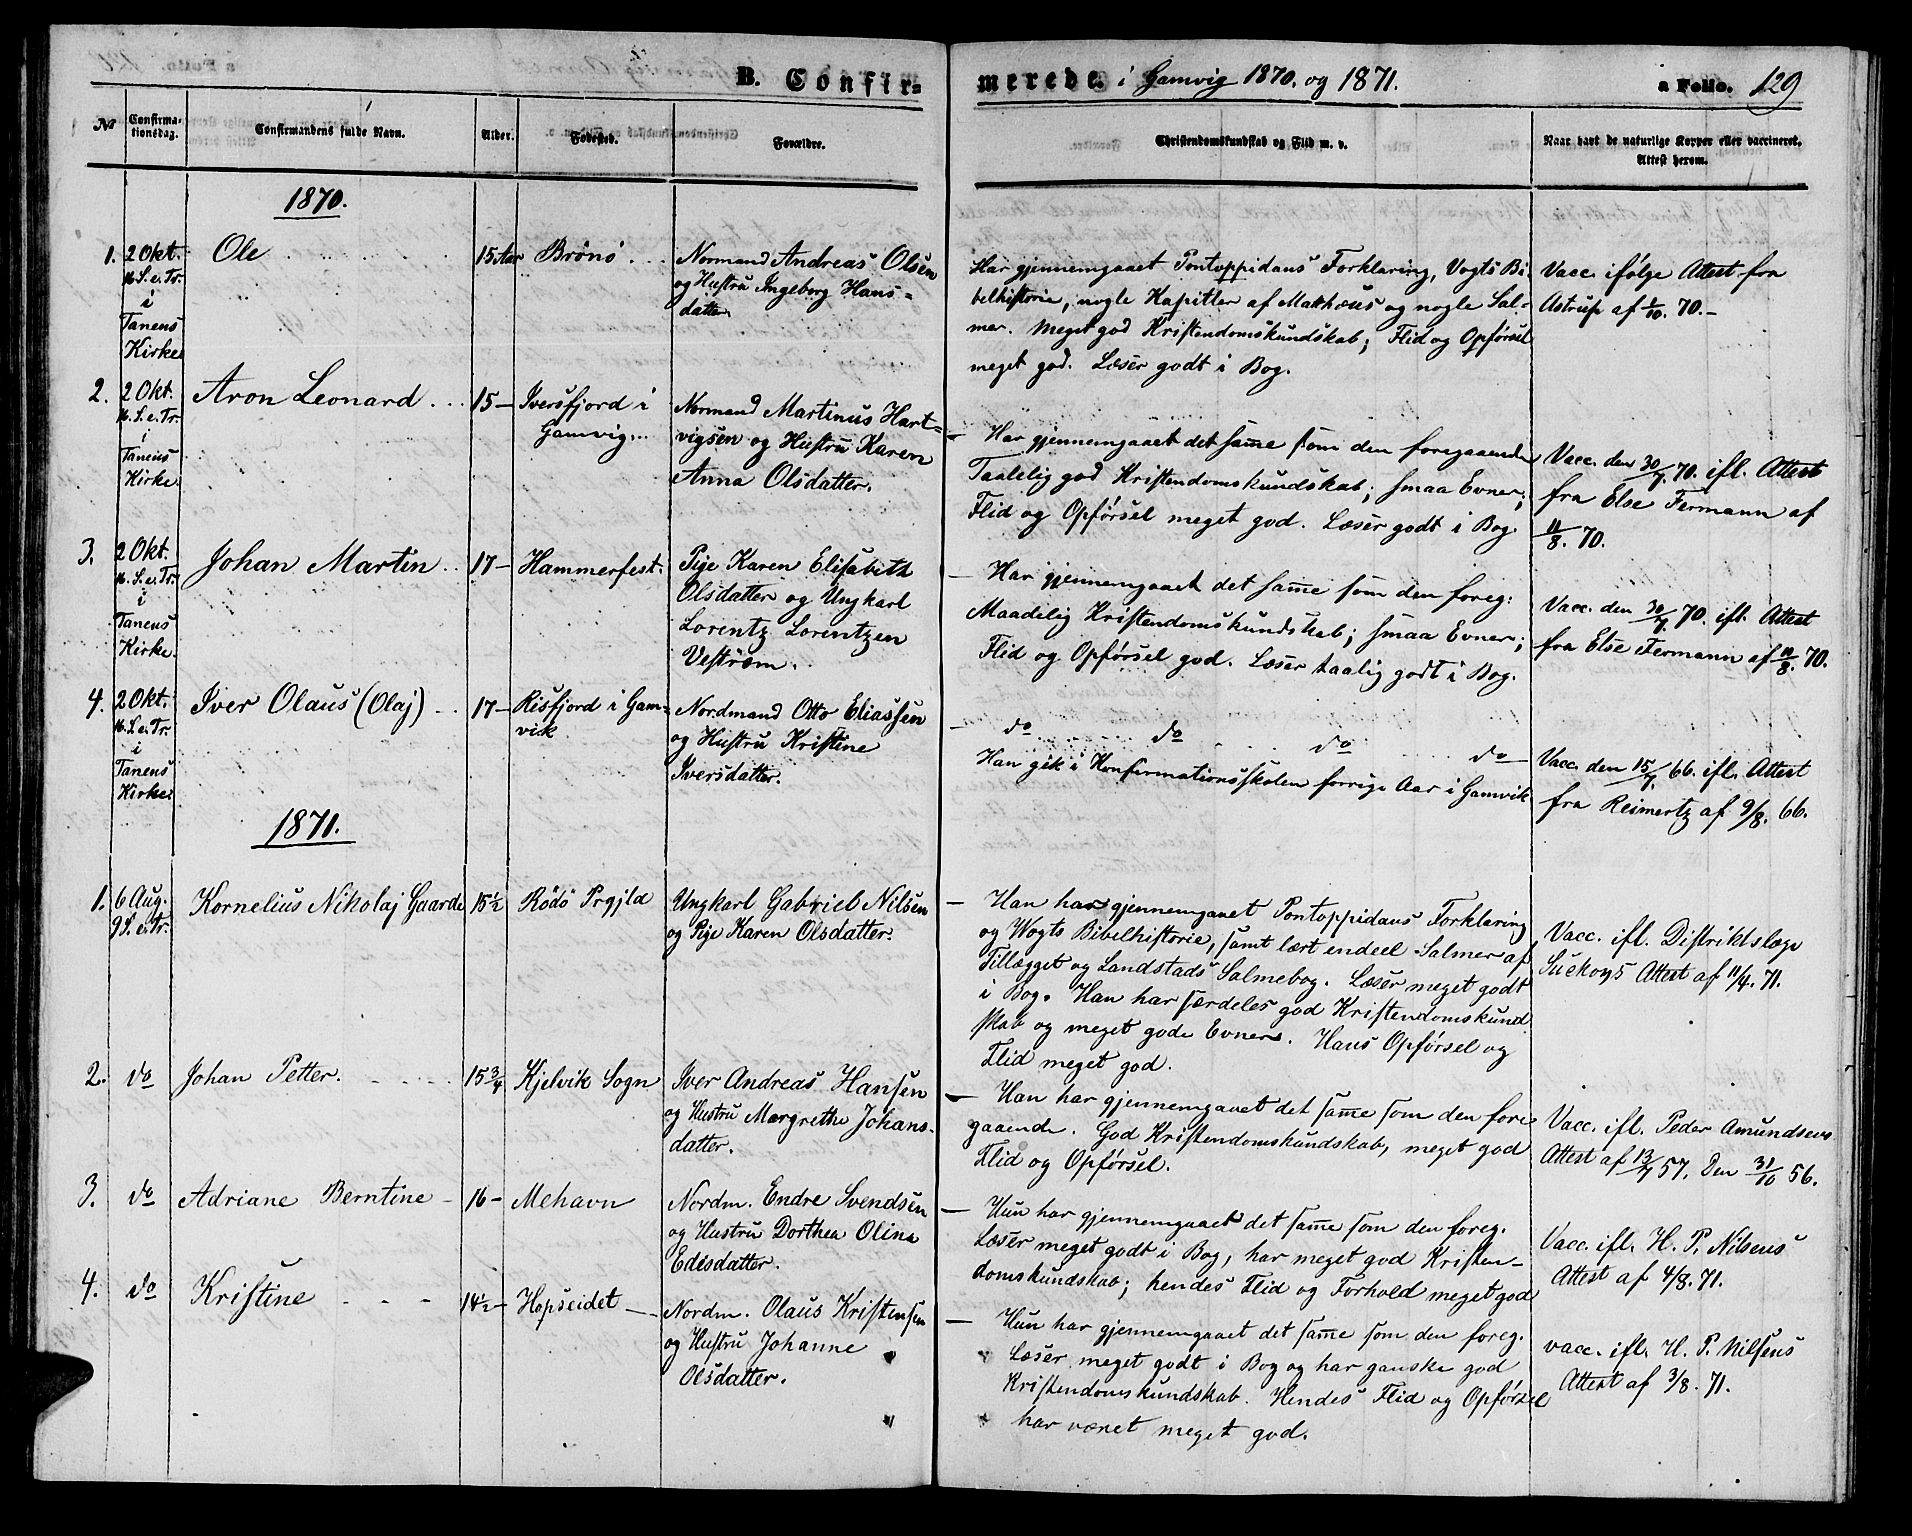 B. Confirmerede i Gamvig 1870. og 1871. a Folio. 129
No
Confirmationsdag.
Confirmandens fulde Navn.
Alder.
Fødested.
Forældre.
Christendomskundskab og Flid m. v.
Naar havt de naturlige Kopper eller vaccineret. Attest herom.
1870.
1.
2 Okt.
16. S. e. Tr.
i
Tanens
Kirke
Ole
15 Aar
Brønø
Normand Andreas Olsen
og Hustru Ingeborg Hans-
datter.
Har gjennemgaaet Pontoppidans Forklaring, Vogts Bi-
belhistorie, nogle Kapitler af Mathæus og nogle Sal-
mer. Meget god Kristendomskundskab; Flid og Opførsel
meget god. Læser godt i Bog.
Vacc. ifølge Attest fra
Astrup af 1/10. 70.-
2.
2 Okt.
16. S. e. Tr.
i
Tanens
Kirke
Aron Leonard
15-
Iversfjord i
Gamvig
Normand Martinus Hart-
vigsen og Hustru Karen
Anna Olsdatter.
- Har gjennemgaaet det samme som den foregaaende
Taalelig god Kristendomskundskab; smaa Evner;
Flid og Opførsel meget god. Læser godt i Bog.
Vacc. den 30/7. 70. ifl. Attest
fra Else Fermann af
11/8. 70.
3.
2 Okt.
16. S. e. Tr.
i
Tanens
Kirke.
Johan Martin
17-
Hammerfest.
Pige Karen Elisabeth
Olsdatter og Ungkarl
Lorentz Lorentzen
Vestrøm.
- Har gjennemgaaet det samme som den foreg:
Maadelig Kristendomskundskab; smaa Evner;
Flid og Opførsel god. Læser taalig godt i Bog.
Vacc. den 30/7. 70. ifl. Attest
fra Else Fermann af 11/8. 70.
4.
2 Okt.
16. S. e. Tr.
i
Tanens
Kirke.
Iver Olaus (Olaj)
17-
Risfjord i Gam-
vik
Nordmand Otto Eliassen
og Hustru Kristine
Iversdatter.
- do do do do
Han gik i Konfirmationsskolen forrige Aar i Gamvik
Vacc. den 15/7. 66. ifl. Attest
fra Reimertz af 9/8. 66.
1871.
1.
6 Aug.
9 S. e. Tr.
Kornelius Nikolaj Gaarde
15½
Rødø Prgjld
Ungkarl Gabriel Nilsen
og Pige Karen Olsdatter.
- Han har gjennemgaaet Pontoppidans Forklaring
og Wogts Bibelhistorie, samt lært endeel Salmer af
Tillægget og Landstads Salmebog. Læser meget godt
i Bog. Han har særdeles god Kristendomskund
skab og meget gode Evner. Hans Opførsel og
Flid meget god.
Vacc. ifl. Distriktslæge
Suckows Attest af 11/4. 71.
2.
do
Johan Petter.
15¾
Kjelvik Sogn
Iver Andreas Hansen
og Hustru Margrethe Johans-
datter.
- Han har gjennemgaaet det samme som den fore
gaaende. God Kristendomskundskab, meget god
Flid og Opførsel.
Vacc. ifl. Peder Amundsens
Attest af 13/7 57. Den 31/10 56.
3.
do
Adriane Berntine
16-
Mehavn
Nordm. Endre Svendsen
og Hustru Dorthea Olina
Edisdatter.
- Hun har gjennemgaaet det samme som den foreg.
Læser meget godt i Bog, har meget god Kristen-
domskundskab; hendes Flid og Forhold meget god
Vacc. ifl. H. P. Nilsens
Attest af 4/8. 71.
4.
do
Kristine
14½-
Hopseidet
Nordm. Olaus Kristensen
og Hustru Johanne
Olsdatter.
- Hun har gjennemgaaet det samme som den foreg.
Læser meget godt i Bog og har ganske god
Kristendomskundskab. Hendes Flid og Opførsel
har været meget god.
vacc. ifl. H. P. Nilsens
Attest af 3/8. 71.